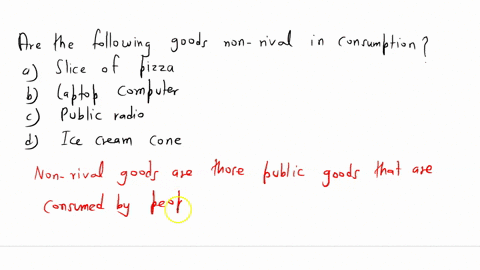 Are the following goods non-rival in consumption?
a) Slice of pizza
b) Laptop Computer
c) Public radio
d) Ice cream cone
Non-rival goods are those public goods that are
consumed by peop